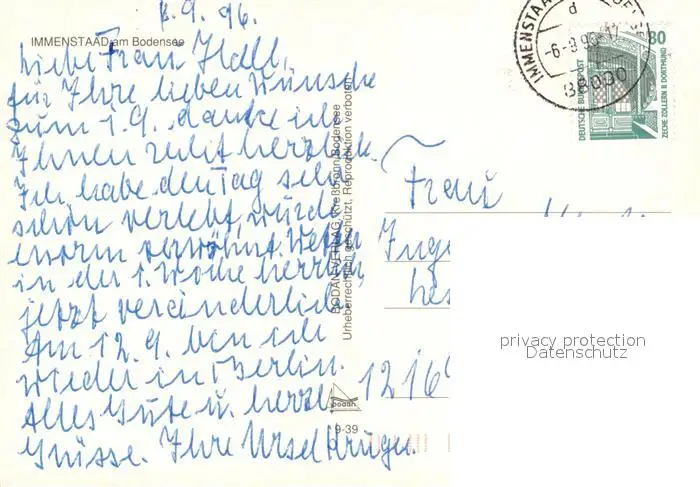 8.9.96.
IMMENSTAAD am Bodensee
Liebe Frau
für Ihre lieben Wünsche
zum 1.9. danke ich
Ihnen recht herzlich.
Ich habe den Tag sehr
schön verlebt, wurde
enorm verwöhnt. Wetter
in der 1. Woche herrlich,
jetzt veränderlich.
Am 12.9. bin ich
wieder in Berlin.
Alles Gute u. herzl.
Grüsse. Ihre
BODAN-VERLAG, Kreßbronn/Bodensee
Urheberrechtlich geschützt, Reproduktion verboten
bodan
9-39
IMMENSTAAD
d
-6.-9.96-
88090
80
DEUTSCHE BUNDESPOST
ZECHE ZOLLERN II, DORTMUND
Frau
1216
privacy protection
Datenschutz